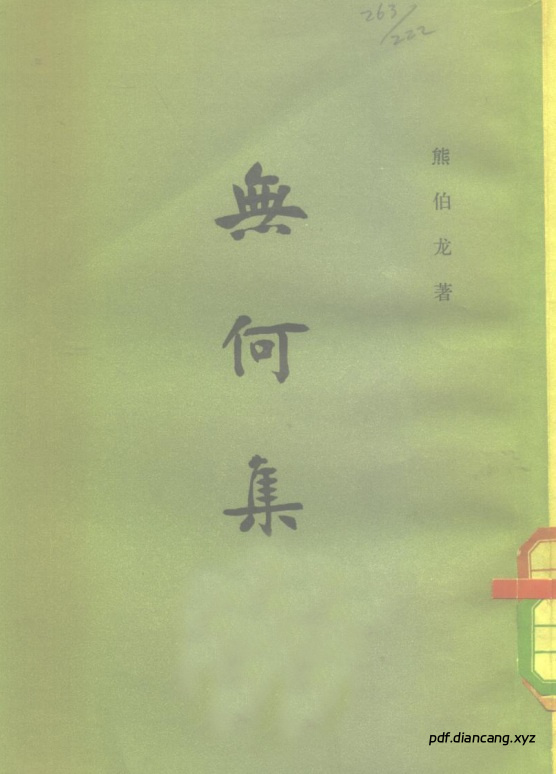 263/222
熊伯龙著
無何集
pdf.diancang.xyz